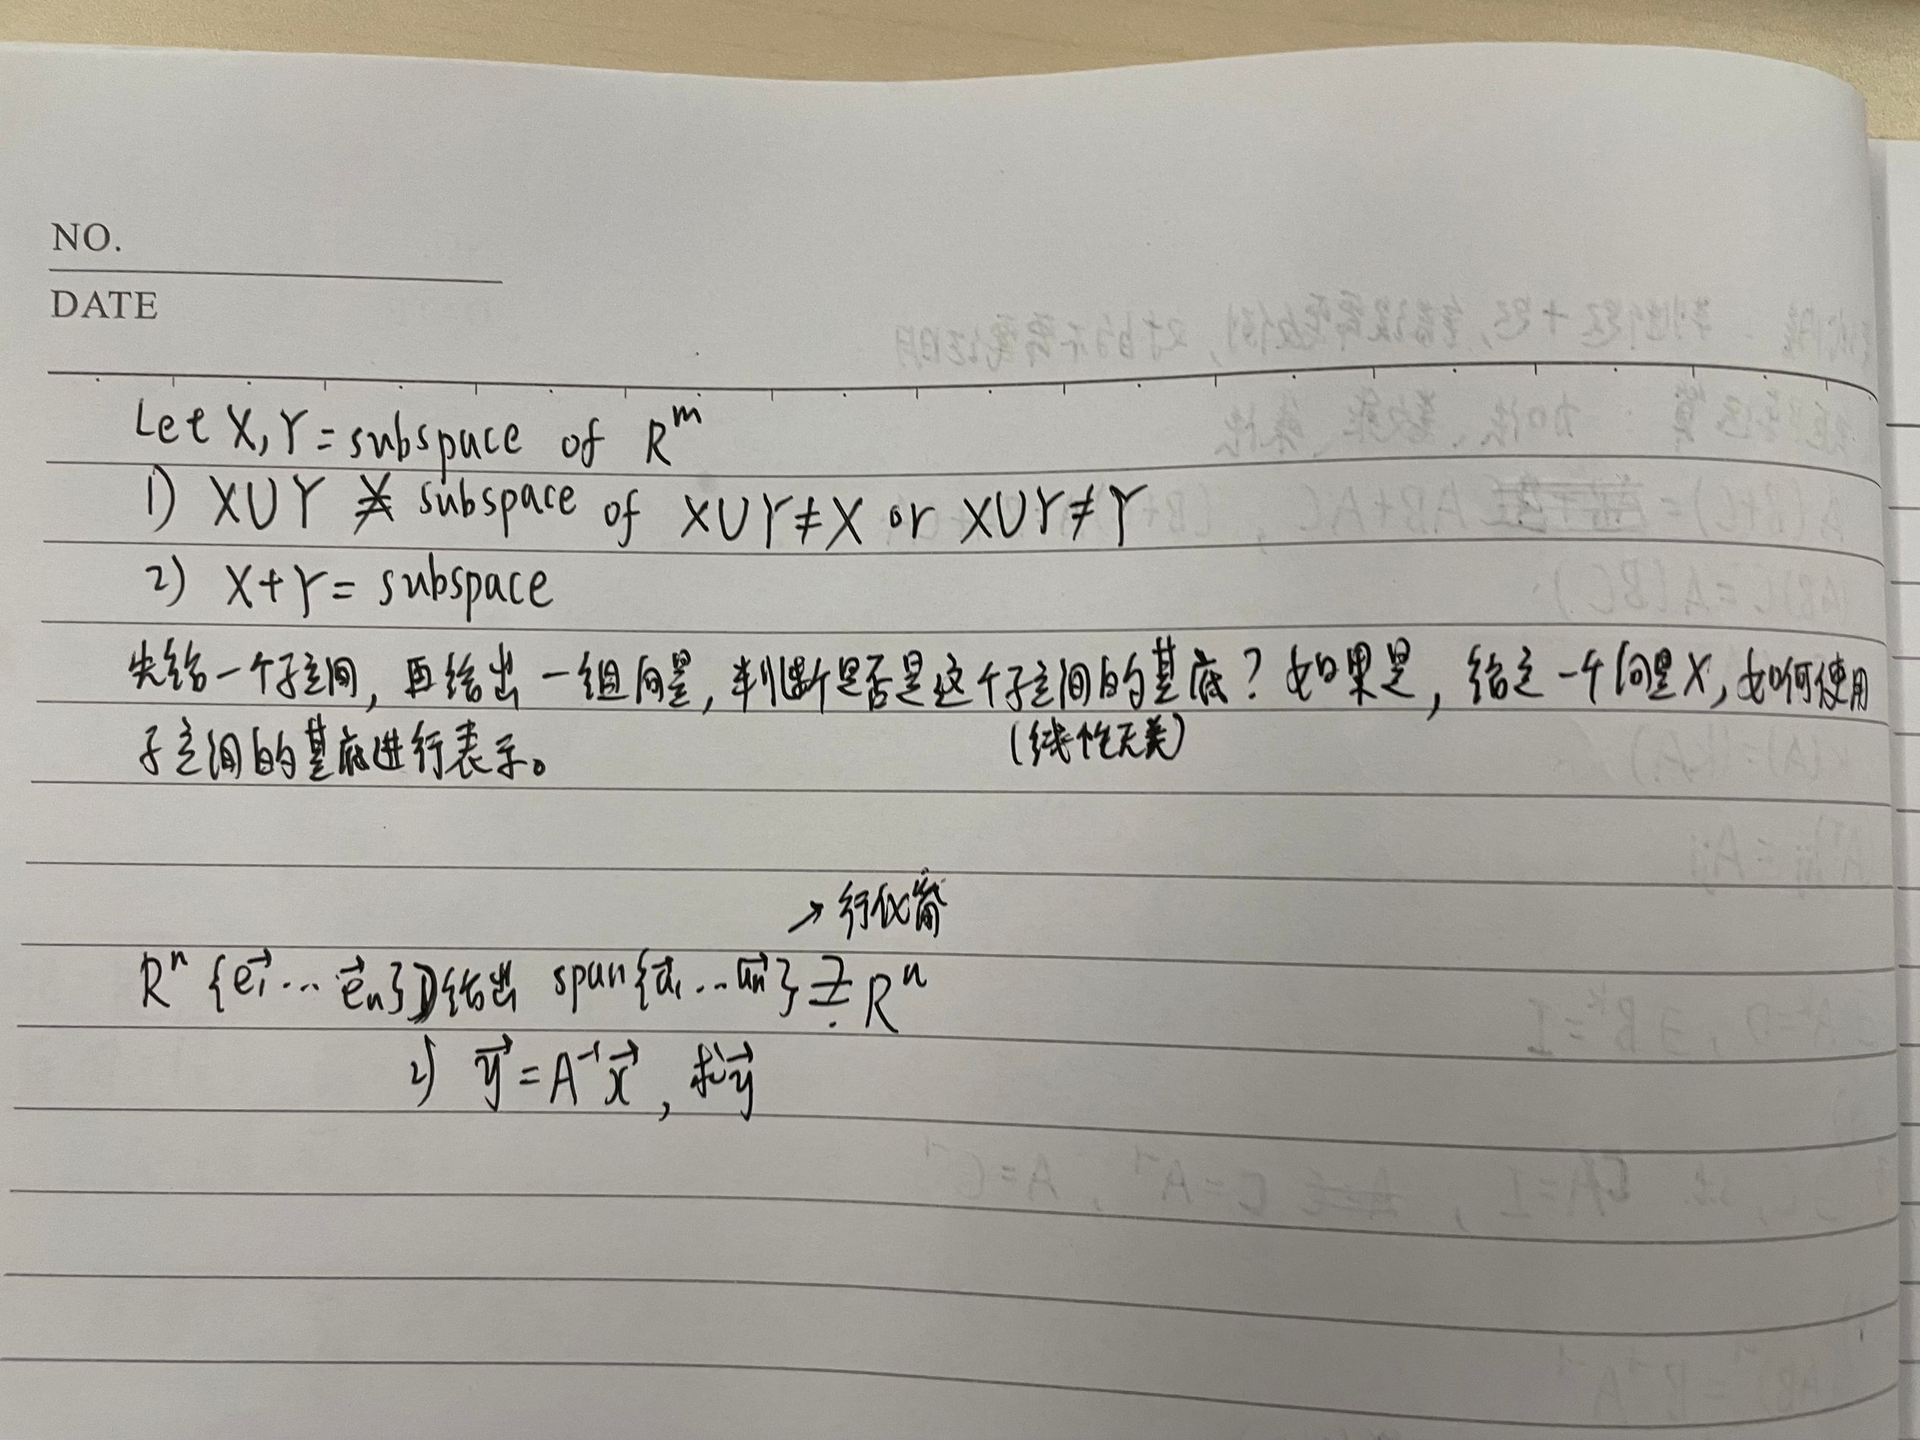 NO.
DATE
Let X, Y = subspace of R^m
1) X∪Y ≠ subspace of X∪Y≠X or X∪Y≠Y
2) X+Y = subspace
先给一个子空间, 再给出一组向量, 判断是否是这个子空间的基底? 如果是, 给定一个向量X, 如何使用
子空间的基底进行表示。 (线性无关)
→行化简
R^n {e⃗₁...e⃗n} 1)给出 span{a⃗₁...a⃗n} R^n
2) y⃗=A⁻¹x⃗, 求y⃗